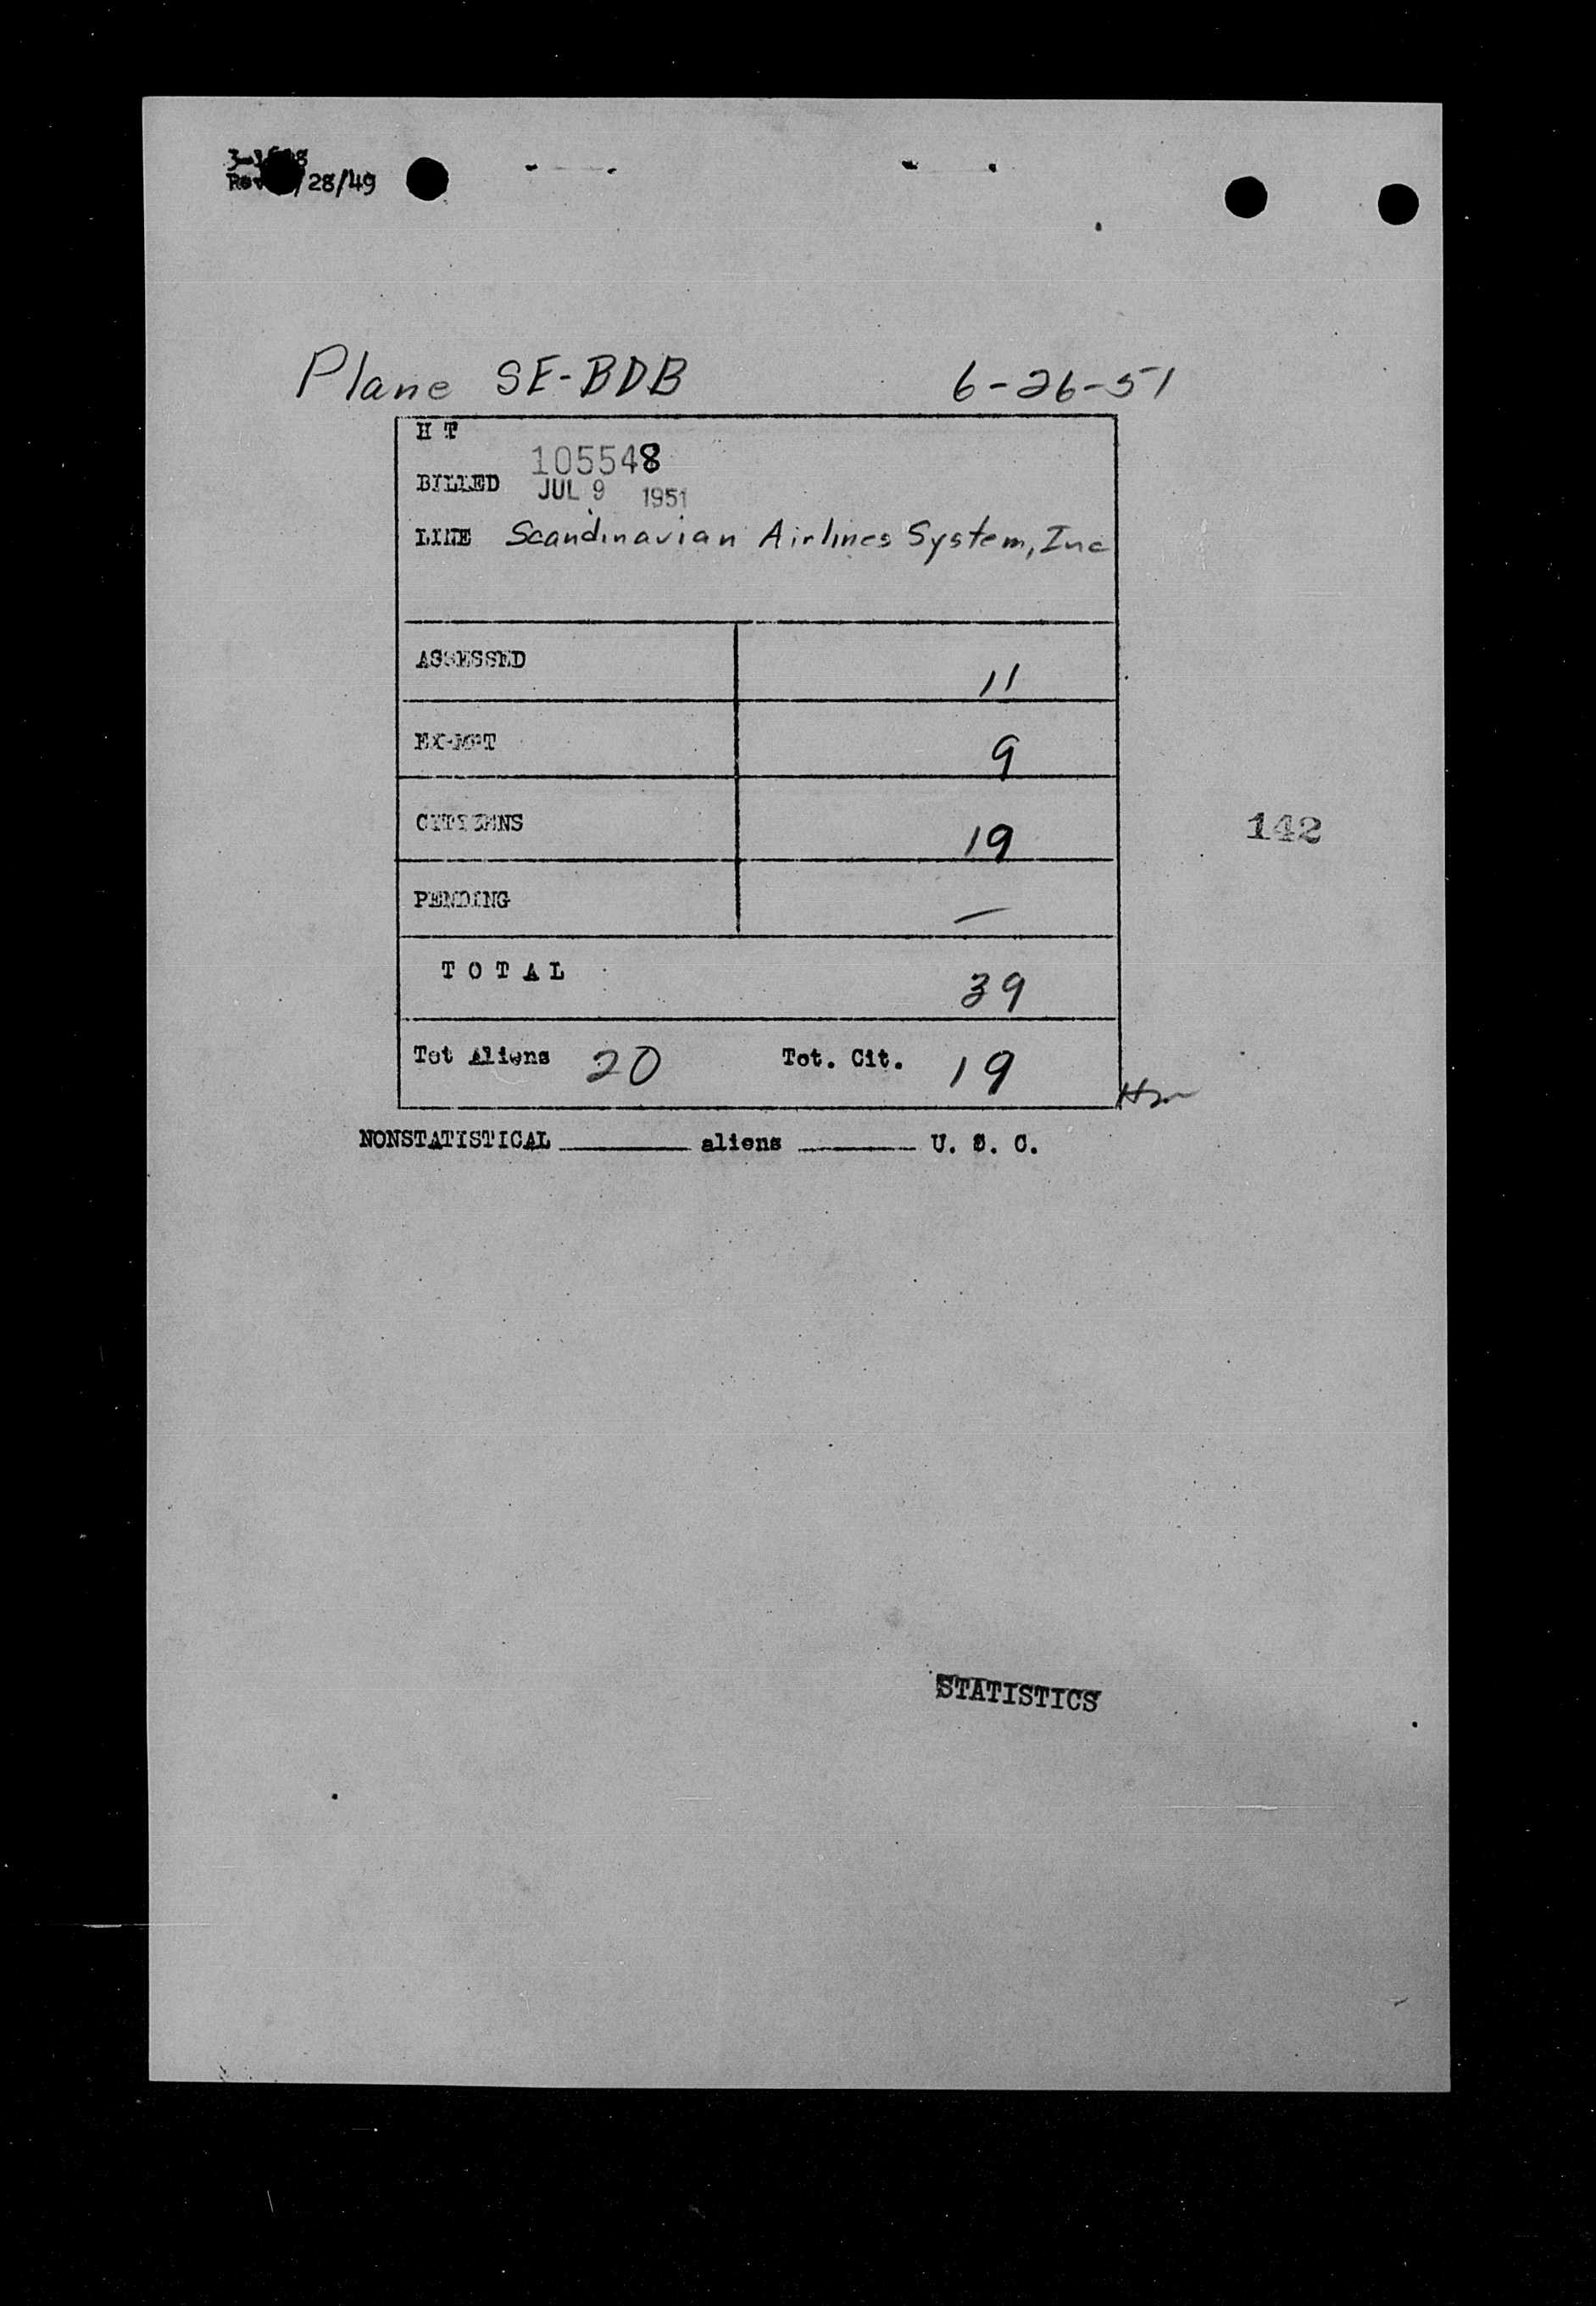 28/49
Plane SE-BDB 6-26-51
H T
105548
BILLED JUL 9 1951
LINE Scandinavian Airlines System, Inc
ASSESSED 11
EXEMPT 9
CITIZENS 19
142
PENDING —
T O T A L 39
Tot Aliens 20 Tot. Cit. 19
NONSTATISTICAL ________ aliens ________ U. S. C.
STATISTICS